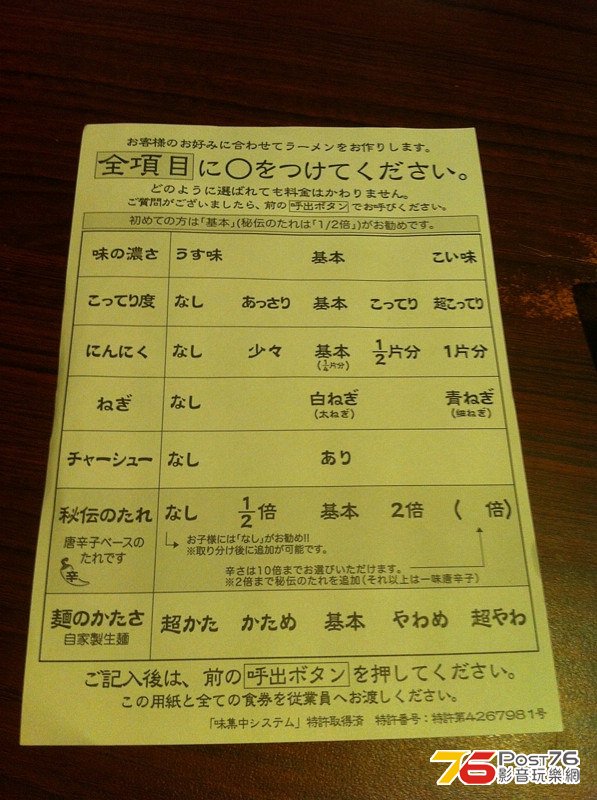 お客様のお好みに合わせてラーメンをお作りします。
全項目に○をつけてください。
どのように選ばれても料金はかわりません。
ご質問がございましたら、前の呼出ボタンでお呼びください。
初めての方は「基本」(秘伝のたれは「1/2倍」)がお勧めです。
味の濃さ うす味 基本 こい味
こってり度 なし あっさり 基本 こってり 超こってり
にんにく なし 少々 基本 1/2片分 1片分
(1/4片分)
ねぎ なし 白ねぎ 青ねぎ
(太ねぎ) (細ねぎ)
チャーシュー なし あり
秘伝のたれ なし 1/2倍 基本 2倍 ( 倍)
唐辛子ベースの
たれです
辛
お子様には「なし」がお勧め!!
※取り分け後に追加が可能です。
辛さは10倍までお選びいただけます。
※2倍まで秘伝のたれを追加(それ以上は一味唐辛子)
麺のかたさ 超かた かため 基本 やわめ 超やわ
自家製生麺
ご記入後は、前の呼出ボタンを押してください。
この用紙と全ての食券を従業員へお渡しください。
「味集中システム」特許取得済 特許番号:特許第4267981号
76 Post76
影音玩樂網